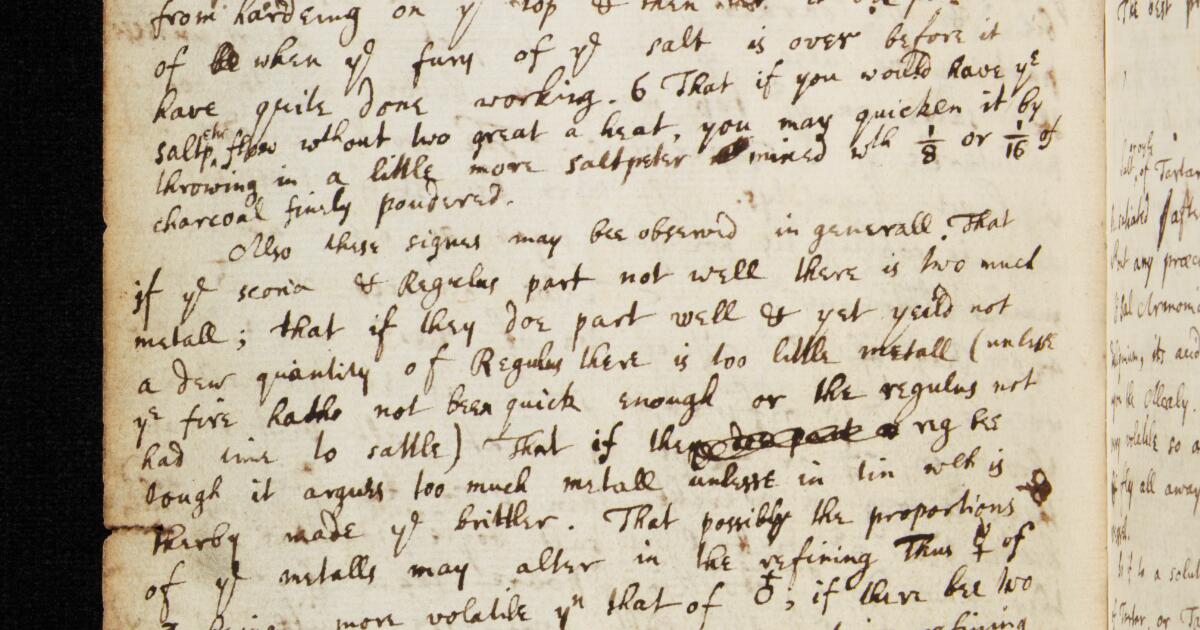 from hardeing on yͤ top & then
of when yͤ fury of yͤ salt is over before it
have quite done working. 6 That if you would have yͤ
saltpͤᵗʳ flow wthout two great a heat, you may quicken it by
throwing in a little more saltpeter mixed wth 1/8 or 1/16 of
charcoal finely poudered.
Also these signes may bee observed in generall. That
if yͤ scoria & Regulus part not well there is two much
metall; that if they doe part well & yet yeild not
a dew quantity of Regulus there is too little metall (unlesse
yͤ fire hath not been quick enough or the regulus not
had time to sattle) That if the reg bee
tough it argues too much metall unlesse in tin wch is
therby made yͤ brittler. That possibly the proportions
of yͤ metalls may alter in the refining Thus ♀ of
more volatile yⁿ that of ♁; if there bee two
refining
The best pr
of Tartar
afte
but any proce
Sal Armonia
its acid
volatile so a
fly all away
a solut
or